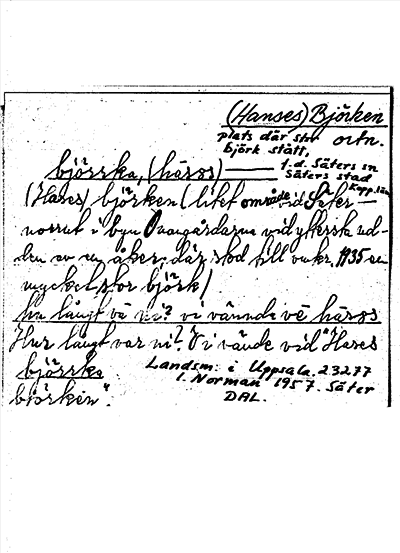 (Hanses) Björken
plats där stor ortn.
björk stått.
björrka, (håsos) — f.d. Säters sn
Säters stad
Kopp. län
(Hases) björken (litet område vid Säter—
norrut i byn Ovangårdarna vid yttersta än-
den av en åker; där stod till omkr. 1935 en
mycket stor björk)
hu långt va ni? vi vännde ve håsos
Hur långt var ni? Vi vände vid "Hases
björrka
björken".
Landsm. i Uppsala. 23277
I. Norman 1957. Säter
DAL.